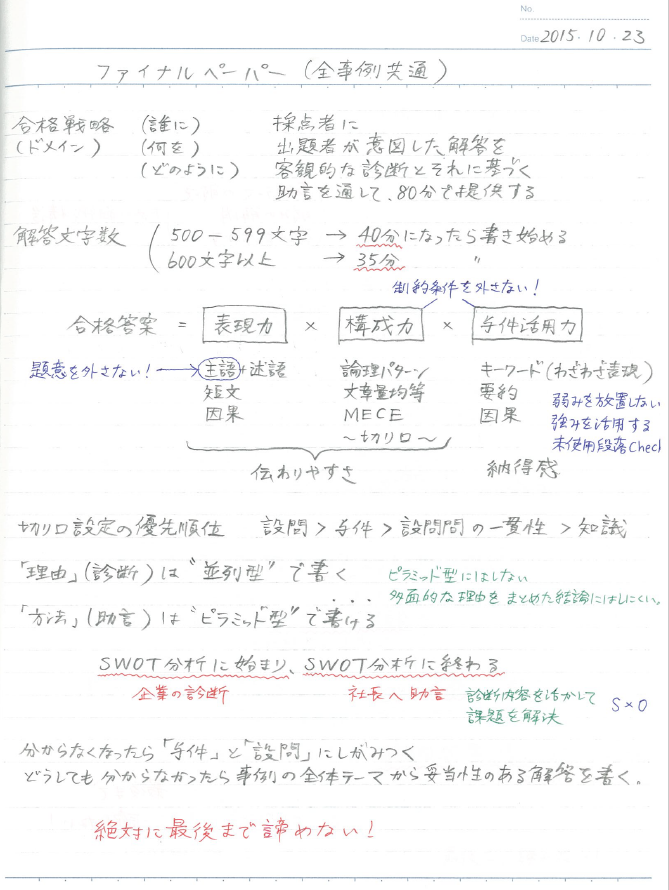 No.
Date 2015.10.23
ファイナルペーパー(全事例共通)
合格戦略 (誰に) 採点者に
(ドメイン) (何を) 出題者が意図した解答を
(どのように) 客観的な診断とそれに基づく
助言を通して、80分で提供する
解答文字数 500-599文字 → 40分になったら書き始める
600文字以上 → 35分 〃
制約条件を外さない!
合格答案 = 表現力 × 構成力 × 与件活用力
題意を外さない!→ 主語+述語 論理パターン キーワード(わざわざ表現)
短文 文章量均等 要約 弱みを放置しない
因果 MECE 因果 強みを活用する
~切り口~ 未使用段落Check
伝わりやすさ 納得感
切り口設定の優先順位 設問 > 与件 > 設問間の一貫性 > 知識
「理由」(診断)は"並列型"で書く ピラミッド型にはしない
多面的な理由をまとめた結論にはしにくい。
「方法」(助言)は"ピラミッド型"で書ける
SWOT分析に始まり、SWOT分析に終わる
企業の診断 社長へ助言 診断内容を活かして S×O
課題を解決
分からなくなったら「与件」と「設問」にしがみつく
どうしても分からなかったら事例の全体テーマから妥当性のある解答を書く。
絶対に最後まで諦めない!